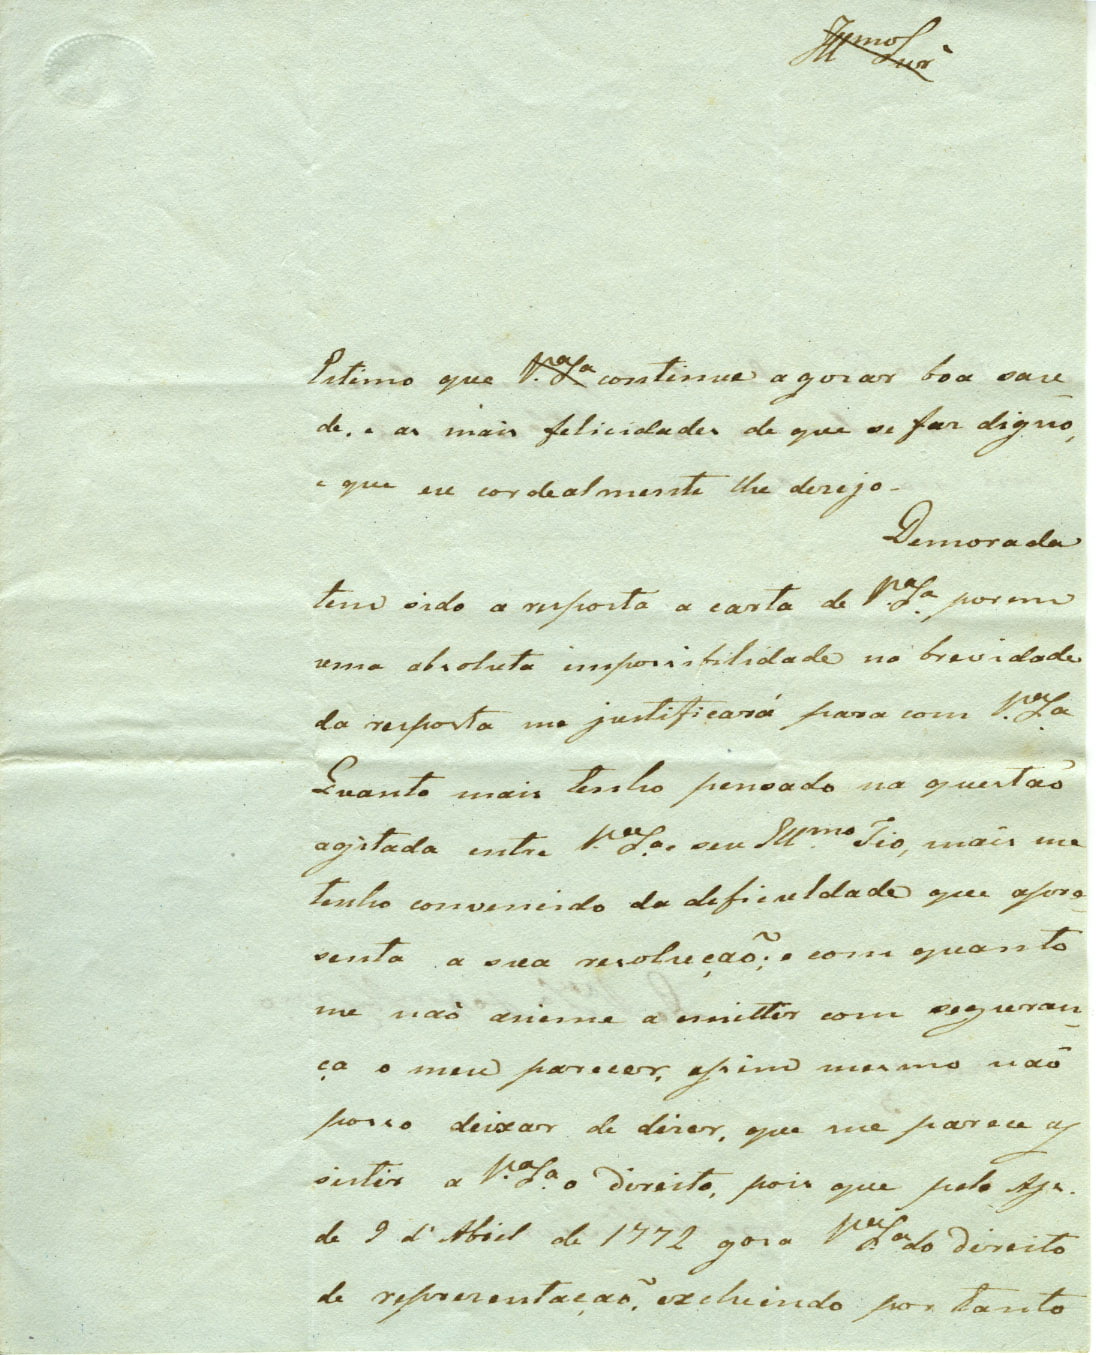 Illmo Snr
Estimo que V.ª S.ª continue a gosar boa sau
de, e as mais felicidades de que se faz digno,
e que eu cordealmente lhe desejo.
Demorada
tem sido a resposta a carta de V.ª S.ª porem
uma absoluta impossibilidade na brevidade
da resposta me justificará para com V.ª S.ª
Quanto mais tenho pensado na questaõ
agitada entre V.ª S.ª e seu Ill.mo Tio, mais me
tenho convencido da deficuldade que apre-
senta a sua resoluçaõ; e com quanto
me naõ anime a emittir com seguran-
ça o meu parecer, assim mesmo naõ
posso deixar de dizer, que me parece as
sistir a V.ª S.ª o direito, pois que pelo Ass.
de 9 d'Abril de 1772 gosa V.ª S.ª do direito
de representaçaõ, excluindo por tanto